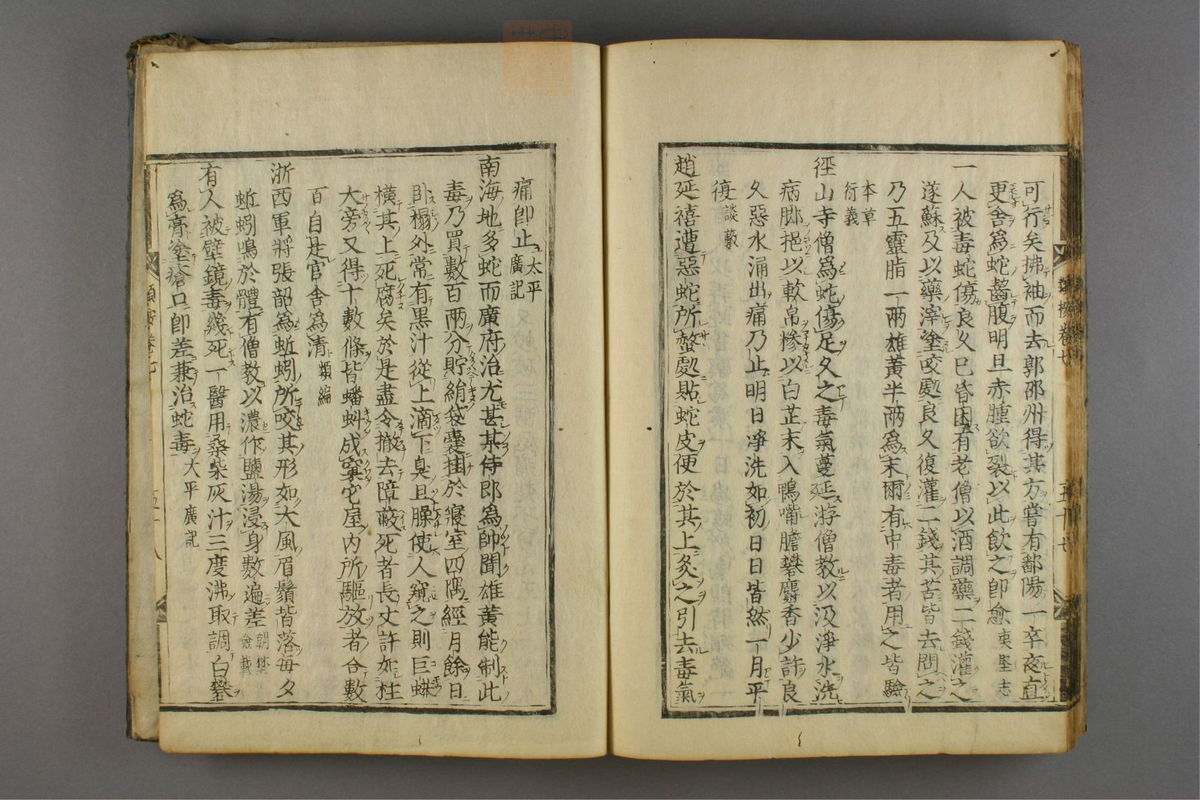 可行矣拂袖而去郭邵州得其方嘗有鄱陽一卒夜直
更舍爲蛇齧腹明旦赤腫欲裂以此飲之卽愈夷堅志
一人被毒蛇傷良久已昏困有老僧以酒調藥二錢灌之
遂蘇及以藥滓塗咬處良久復灌二錢其苦皆去問之
乃五靈脂一兩雄黃半兩爲末爾有中毒者用之皆驗
本草
衍義
徑山寺僧爲蛇傷足久之毒氣蔓延游僧教以汲淨水洗
病脚挹以軟帛糝以白芷末入鴨嘴膽礬麝香少許良
久惡水涌出痛乃止明日淨洗如初日日皆然一月平
復談藪
趙延禧遭惡蛇所螫處貼蛇皮便於其上灸之引去毒氣
痛卽止太平廣記
南海地多蛇而廣府治尤甚某侍郎爲帥聞雄黃能制此
毒乃買數百兩分貯絹袋囊挂於寢室四隅經月餘日
臥榻外常有黑汁從上滴下臭且臊使人窺之則巨蟒
橫其上死腐矣於是盡令撤去障蔽死者長丈許如柱
大旁又得十數條皆蟠蚪成窠宅屋內所驅放者合數
百自是官舍爲清類編
浙西軍將張韶爲蚯蚓所咬其形如大風眉鬚皆落每夕
蚯蚓鳴於體有僧教以濃作鹽湯浸身數遍差朝野僉載
有人被壁鏡毒幾死一醫用桑柴灰汁三度沸取調白礬
爲膏塗瘡口卽差兼治蛇毒太平廣記